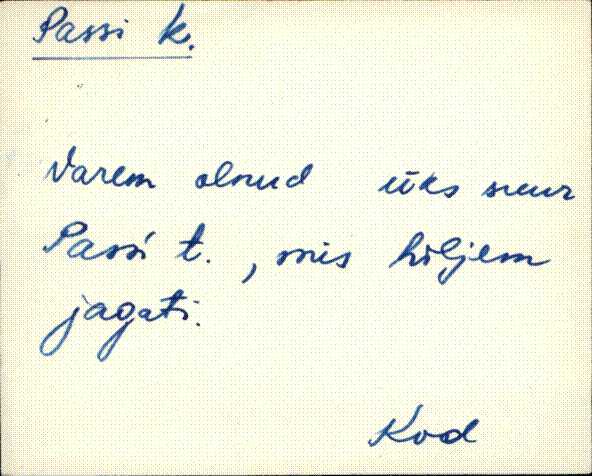 Passi k.
Varem olnud üks suur
Passi t., mis hiljem
jagati.
Kod